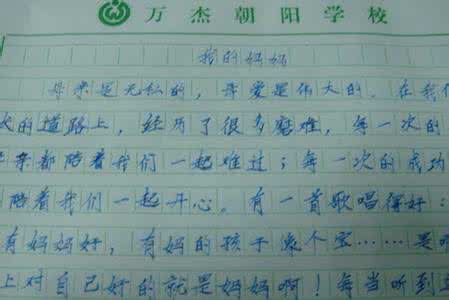 万杰朝阳学校
我的妈妈
母亲是无私的，母爱是伟大的。在我们
的道路上，经历了很多磨难，每一次的
亲都陪着我们一起难过；每一次的成功
陪着我们一起开心。有一首歌唱得好：
有妈妈好，有妈的孩子像个宝……是啊
上对自己好的就是妈妈啊！每当听到